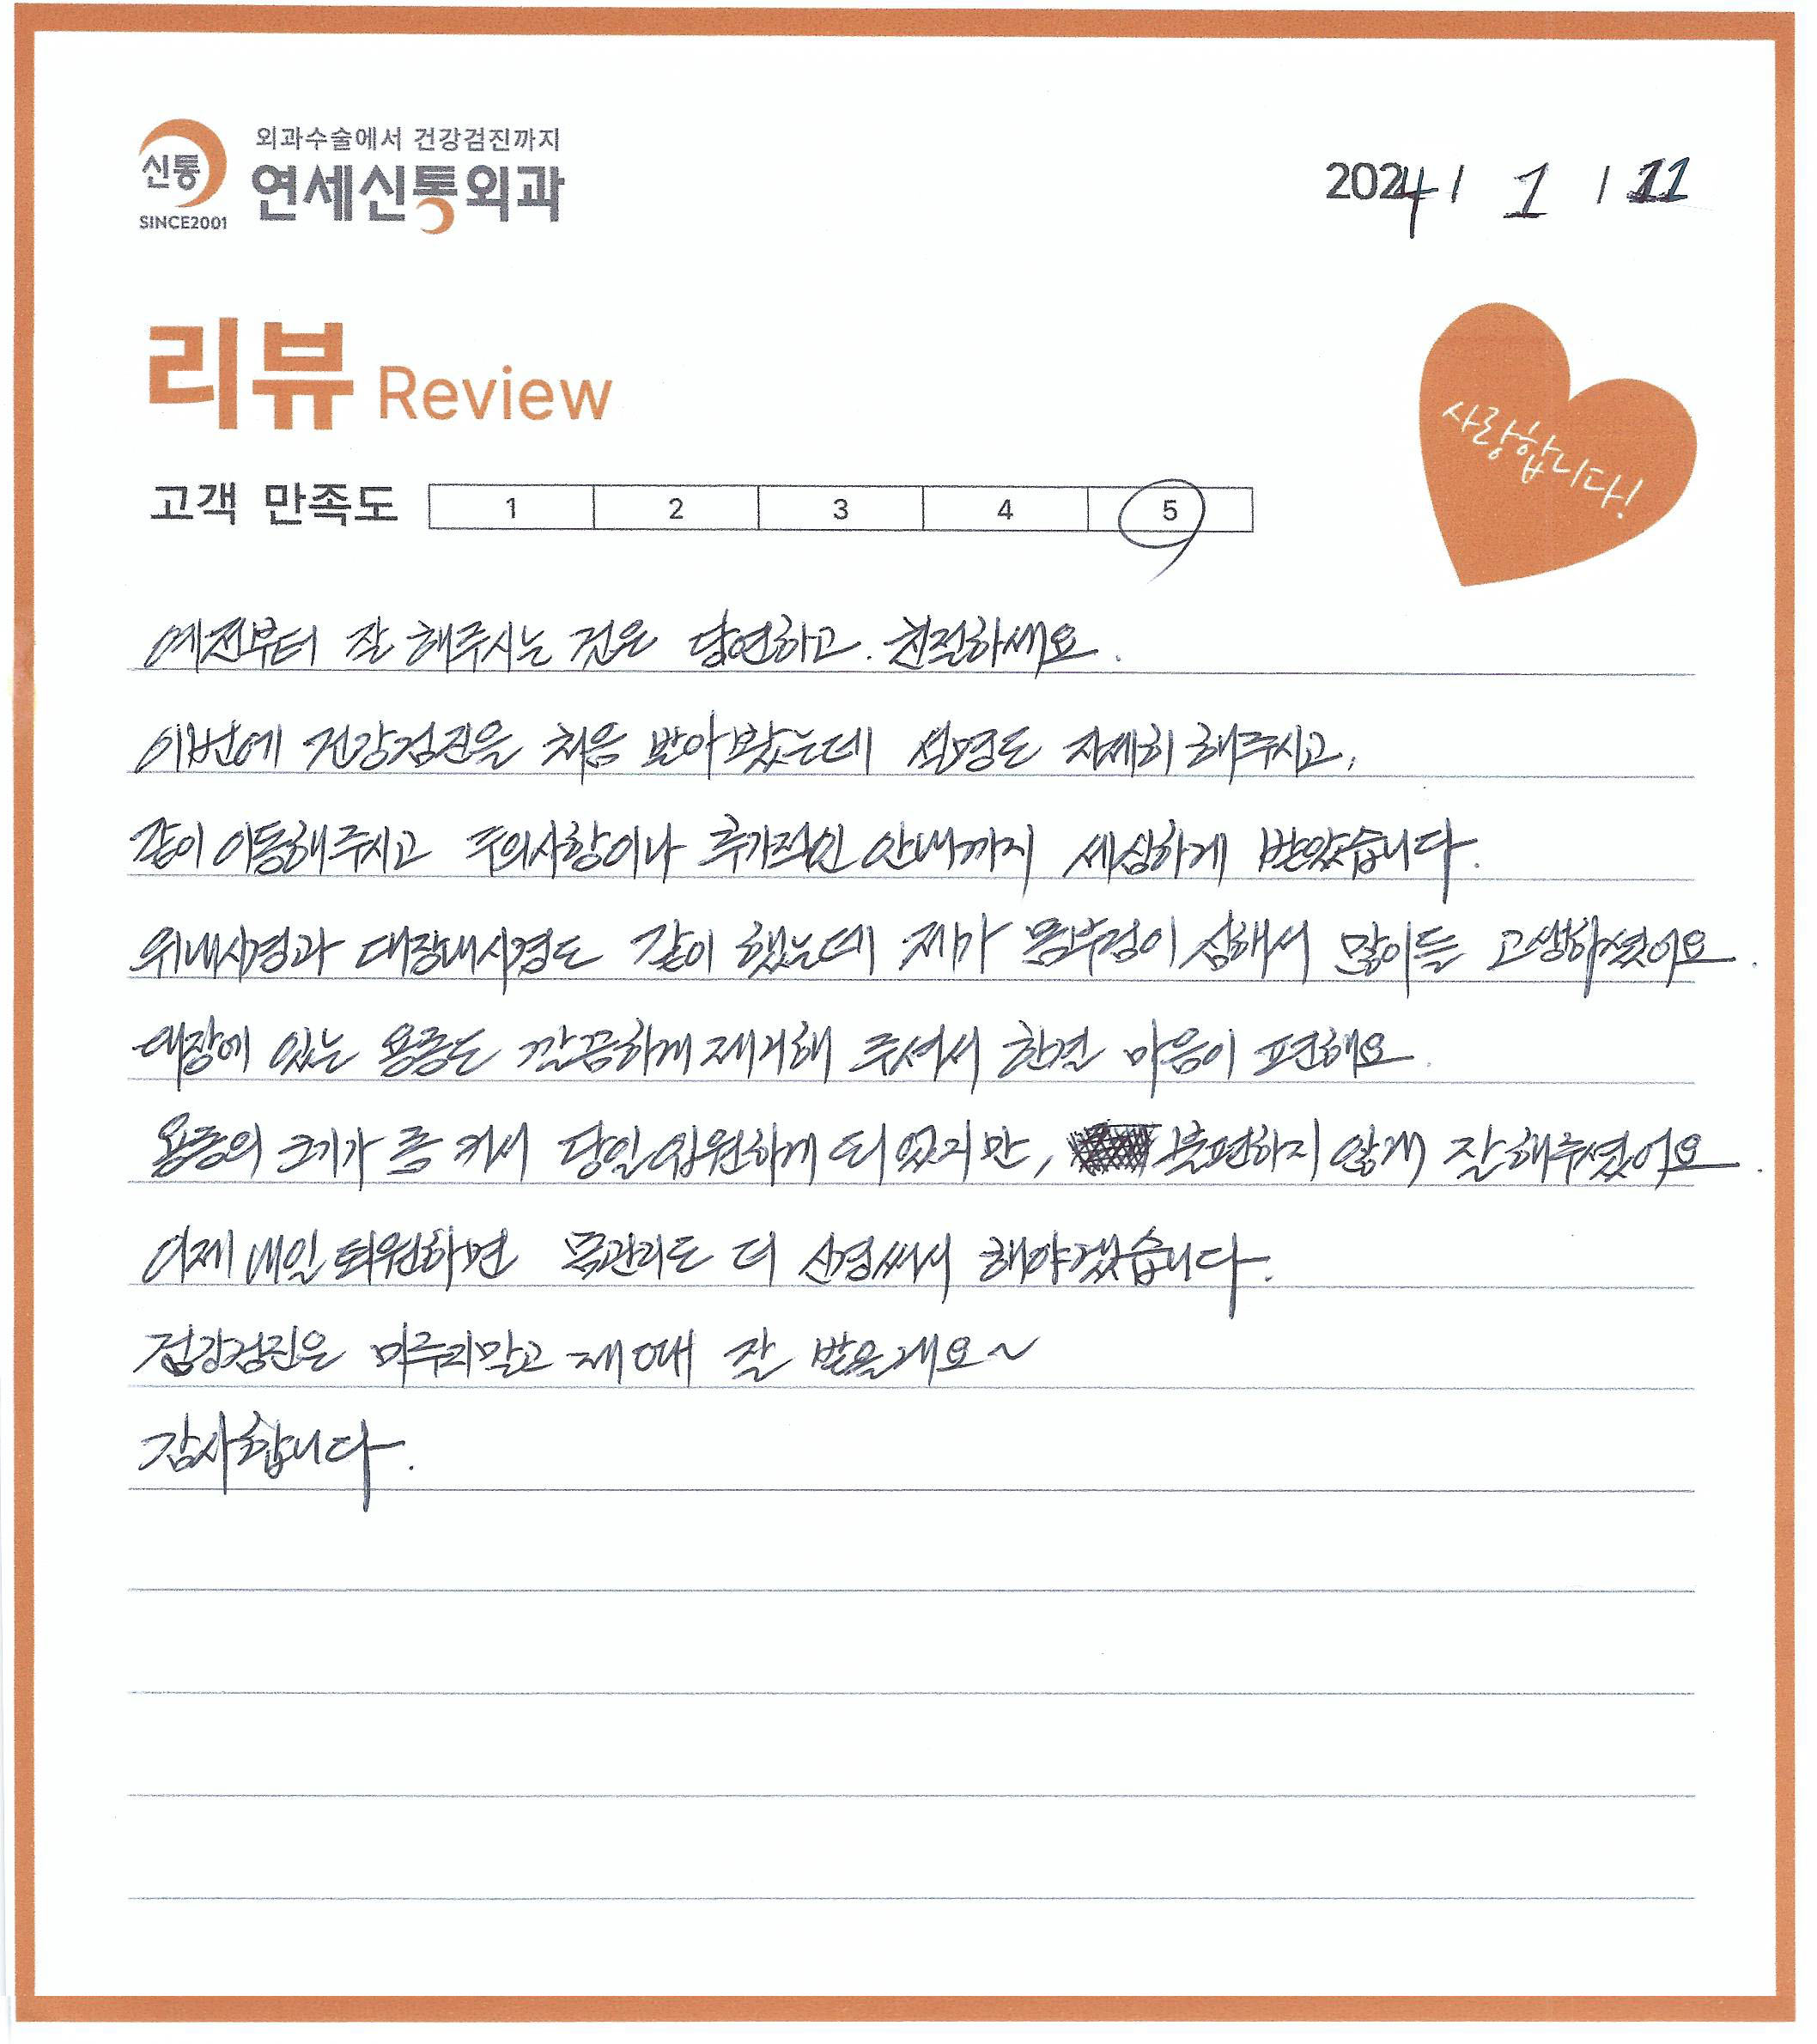 신통
SINCE2001
외과수술에서 건강검진까지
연세신통외과
2024 / 1 / 11
리뷰 Review
사랑합니다!
고객 만족도 1 2 3 4 5
예전부터 잘 해주시는 것은 당연하고. 친절하세요.
이번에 건강검진을 처음 받아 봤는데 설명도 자세히 해주시고,
같이 이동해주시고 주의사항이나 추가적인 안내까지 세심하게 받았습니다.
위내시경과 대장내시경도 같이 했는데 제가 몸부림이 심해서 많이들 고생하셨어요.
대장에 있는 용종도 깔끔하게 제거해 주셔서 한결 마음이 편해요.
용종의 크기가 좀 커서 당일입원하게 되었지만, 불편하지 않게 잘해주셨어요.
이제 내일 퇴원하면 몸관리도 더 신경써서 해야겠습니다.
건강검진은 미루지말고 제때 잘 받을게요~
감사합니다.